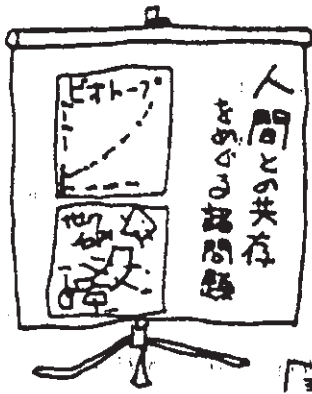 人間との共存
をめぐる諸問題
ビオトープ